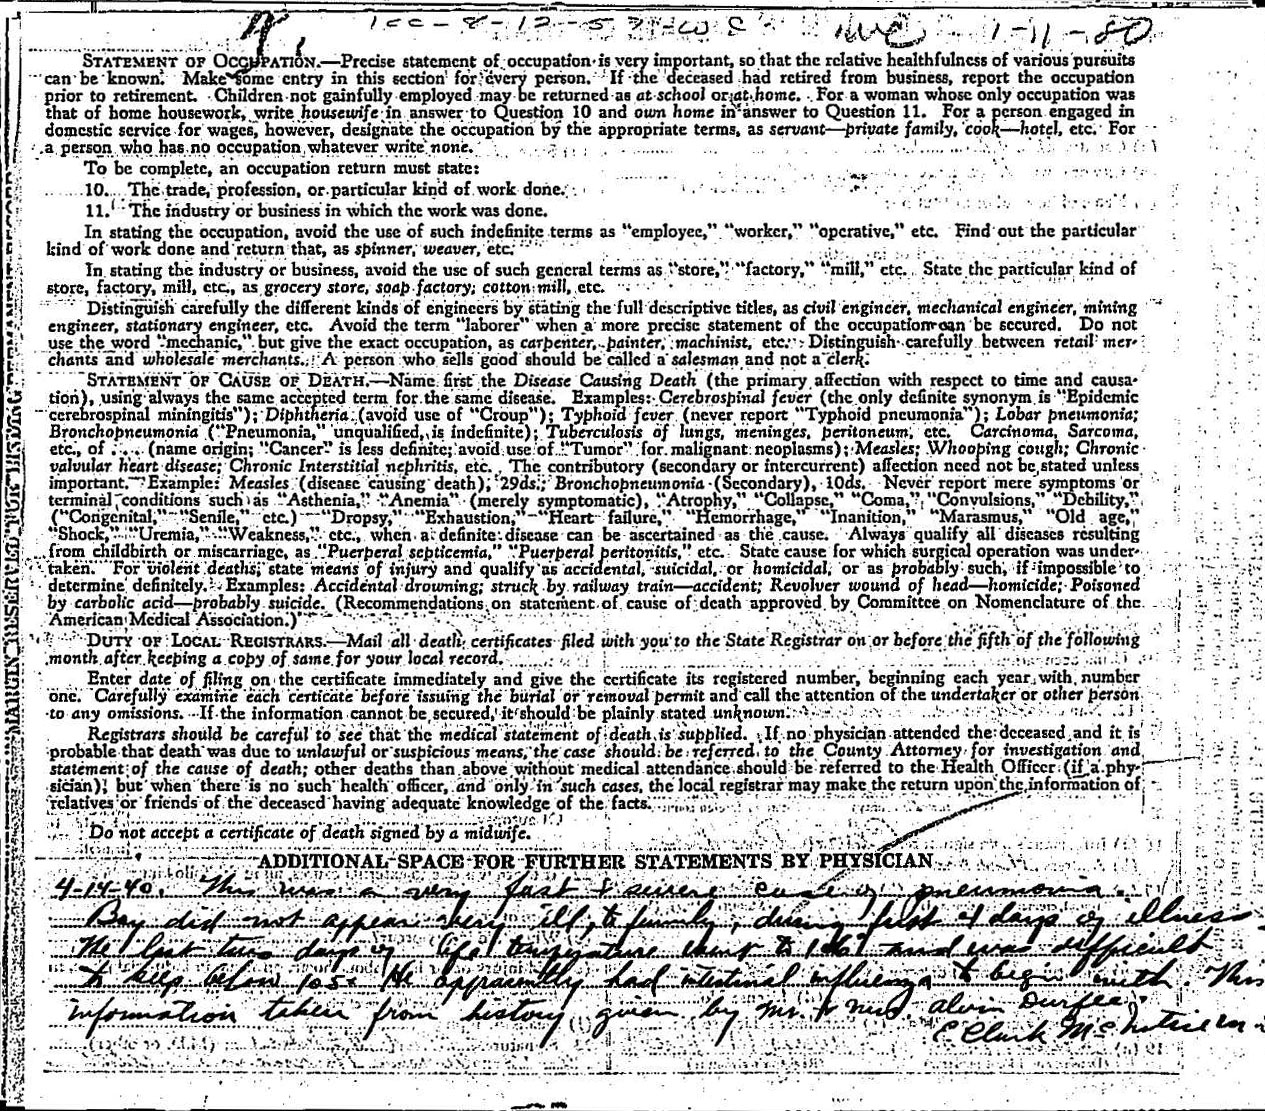 1-11-80
STATEMENT OF OCCUPATION.—Precise statement of occupation is very important, so that the relative healthfulness of various pursuits
can be known. Make some entry in this section for every person. If the deceased had retired from business, report the occupation
prior to retirement. Children not gainfully employed may be returned as at school or at home. For a woman whose only occupation was
that of home housework, write housewife in answer to Question 10 and own home in answer to Question 11. For a person engaged in
domestic service for wages, however, designate the occupation by the appropriate terms, as servant—private family, cook—hotel, etc. For
a person who has no occupation whatever write none.
To be complete, an occupation return must state:
10. The trade, profession, or particular kind of work done.
11. The industry or business in which the work was done.
In stating the occupation, avoid the use of such indefinite terms as "employee," "worker," "operative," etc. Find out the particular
kind of work done and return that, as spinner, weaver, etc.
In stating the industry or business, avoid the use of such general terms as "store," "factory," "mill," etc. State the particular kind of
store, factory, mill, etc., as grocery store, soap factory; cotton mill, etc.
Distinguish carefully the different kinds of engineers by stating the full descriptive titles, as civil engineer, mechanical engineer, mining
engineer, stationary engineer, etc. Avoid the term "laborer" when a more precise statement of the occupation can be secured. Do not
use the word "mechanic," but give the exact occupation, as carpenter, painter, machinist, etc. Distinguish carefully between retail mer-
chants and wholesale merchants. A person who sells good should be called a salesman and not a clerk.
STATEMENT OF CAUSE OF DEATH.—Name first the Disease Causing Death (the primary affection with respect to time and causa-
tion), using always the same accepted term for the same disease. Examples: Cerebrospinal fever (the only definite synonym is "Epidemic
cerebrospinal miningitis"); Diphtheria (avoid use of "Croup"); Typhoid fever (never report "Typhoid pneumonia"); Lobar pneumonia;
Bronchopneumonia ("Pneumonia," unqualified, is indefinite); Tuberculosis of lungs, meninges, peritoneum, etc. Carcinoma, Sarcoma,
etc., of .... (name origin; "Cancer" is less definite; avoid use of "Tumor" for malignant neoplasms); Measles; Whooping cough; Chronic
valvular heart disease; Chronic Interstitial nephritis, etc. The contributory (secondary or intercurrent) affection need not be stated unless
important. Example: Measles (disease causing death), 29ds.; Bronchopneumonia (Secondary), 10ds. Never report mere symptoms or
terminal conditions such as "Asthenia," "Anemia" (merely symptomatic), "Atrophy," "Collapse," "Coma," "Convulsions," "Debility,"
("Congenital," "Senile," etc.) "Dropsy," "Exhaustion," "Heart failure," "Hemorrhage," "Inanition," "Marasmus," "Old age,"
"Shock," "Uremia," "Weakness," etc., when a definite disease can be ascertained as the cause. Always qualify all diseases resulting
from childbirth or miscarriage, as "Puerperal septicemia," "Puerperal peritonitis," etc. State cause for which surgical operation was under-
taken. For violent deaths, state means of injury and qualify as accidental, suicidal, or homicidal, or as probably such, if impossible to
determine definitely. Examples: Accidental drowning; struck by railway train—accident; Revolver wound of head—homicide; Poisoned
by carbolic acid—probably suicide. (Recommendations on statement of cause of death approved by Committee on Nomenclature of the
American Medical Association.)
DUTY OF LOCAL REGISTRARS.—Mail all death certificates filed with you to the State Registrar on or before the fifth of the following
month after keeping a copy of same for your local record.
Enter date of filing on the certificate immediately and give the certificate its registered number, beginning each year with number
one. Carefully examine each certicate before issuing the burial or removal permit and call the attention of the undertaker or other person
to any omissions. If the information cannot be secured, it should be plainly stated unknown.
Registrars should be careful to see that the medical statement of death is supplied. If no physician attended the deceased and it is
probable that death was due to unlawful or suspicious means, the case should be referred to the County Attorney for investigation and
statement of the cause of death; other deaths than above without medical attendance should be referred to the Health Officer (if a phy-
sician), but when there is no such health officer, and only in such cases, the local registrar may make the return upon the information of
relatives or friends of the deceased having adequate knowledge of the facts.
Do not accept a certificate of death signed by a midwife.
ADDITIONAL SPACE FOR FURTHER STATEMENTS BY PHYSICIAN
4-14-40. This was a very fast & severe case of pneumonia.
Boy did not appear very ill, to family, during first 4 days of illness
The last two days of life temperature went to 106° and was difficult
to keep below 105° He apparently had intestinal influenza to begin with. This
information taken from history given by Mr. & Mrs. Alvin Durfee.
E Clark McIntire M